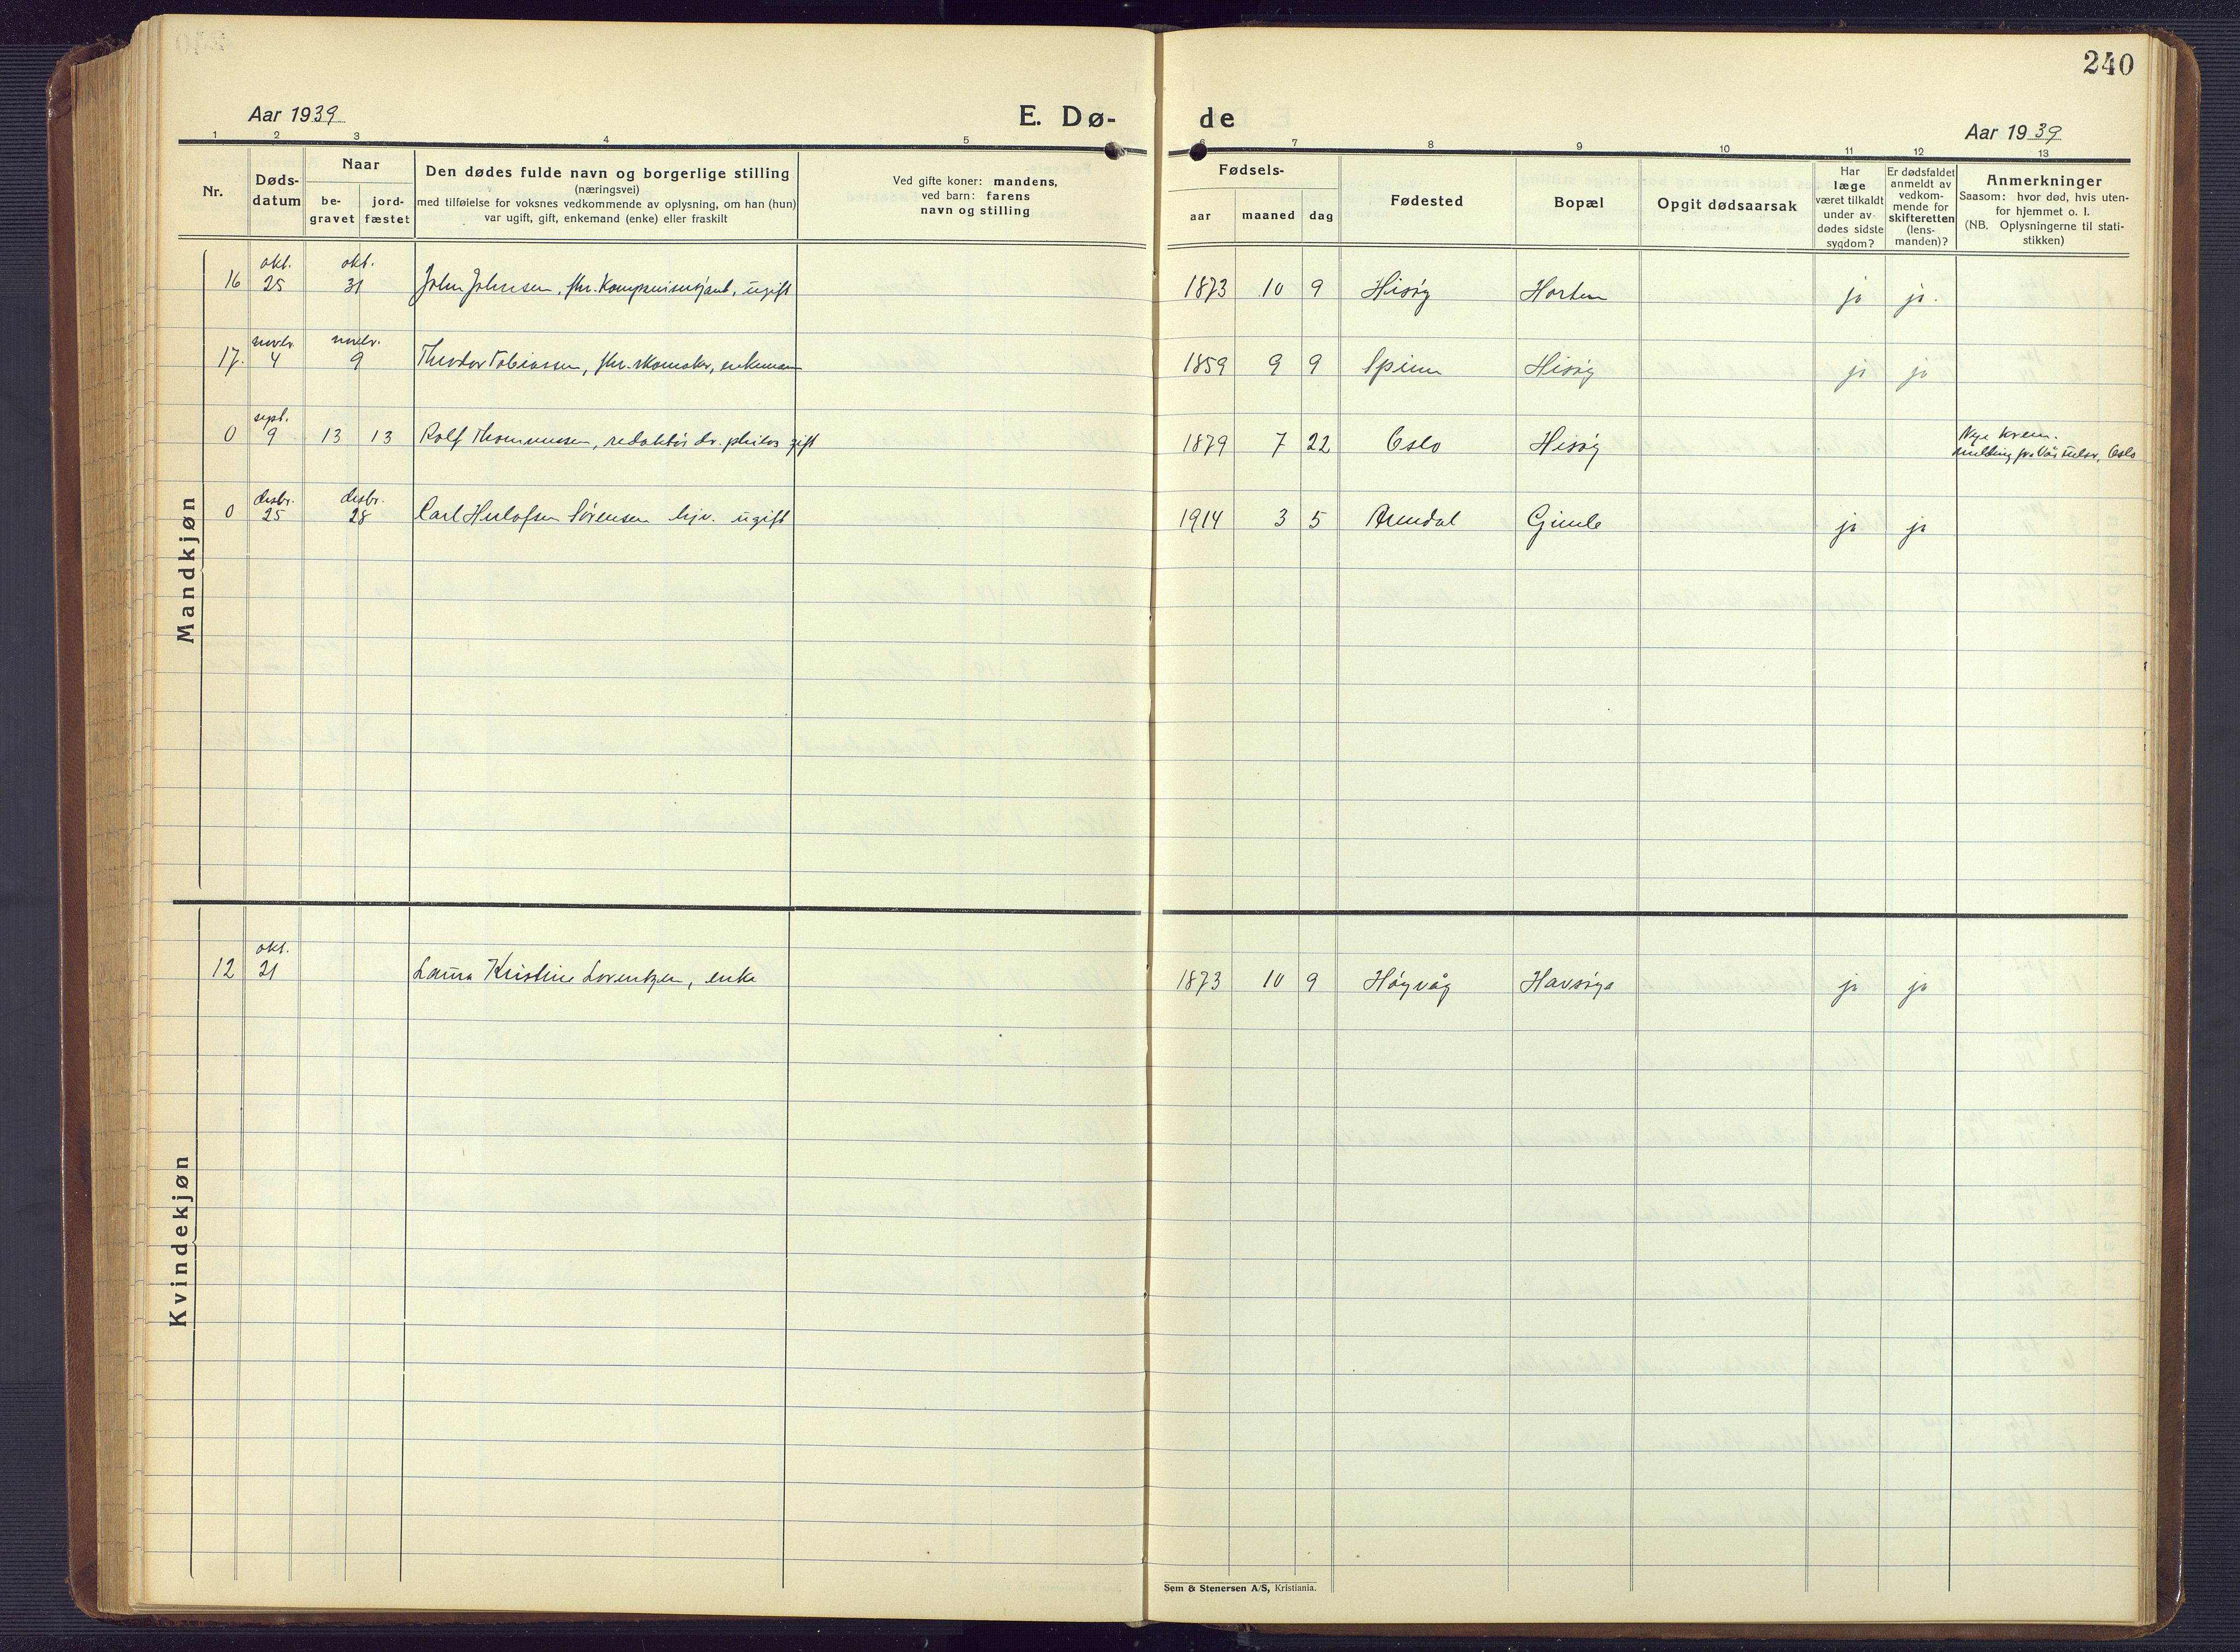 240
Aar 1939
E. Dø-
de
Aar 1939
1 2 3 4 5 6 7 8 9 10 11 12 13
Nr.
Døds-
datum
Naar
be-
gravet
jord-
fæstet
Den dødes fulde navn og borgerlige stilling
(næringsvei)
med tilføielse for voksnes vedkommende av oplysning, om han (hun)
var ugift, gift, enkemand (enke) eller fraskilt
Ved gifte koner: mandens,
ved barn: farens
navn og stilling
Fødsels-
aar maaned dag
Fødested
Bopæl
Opgit dødsaarsak
Har
læge
været tilkaldt
under av-
dødes sidste
sygdom?
Er dødsfaldet
anmeldt av
vedkom-
mende for
skifteretten
(lens-
manden)?
Anmerkninger
Saasom: hvor død, hvis uten-
for hjemmet o. l.
(NB. Oplysningerne til stati-
stikken)
Mandkjøn
okt. okt.
16 25 31 John Johnsen, fhr. ugift 1873 10 9 Hisøy Horten ja ja.
novbr. novbr.
17. 4 9 Theodor Tobiassen, fhr. skomaker, enkemann 1859 9 9 Spinn Hisøy ja ja
sept.
0 9 13 13 Rolf Thommessen, redaktør dr. philos gift 1879 7 22 Oslo Hisøy Nye krem.
melding fra Oslo
desbr. desbr.
0 25 28 Carl Herlofsen Sørensen ugift 1914 3 5 Arendal Gimle ja ja
Kvindekjøn
okt.
12 21 Laura Kristine Lorentzen, enke 1873 10 9 Høyvåg Havsøya ja ja
Sem & Stenersen A/S, Kristiania.